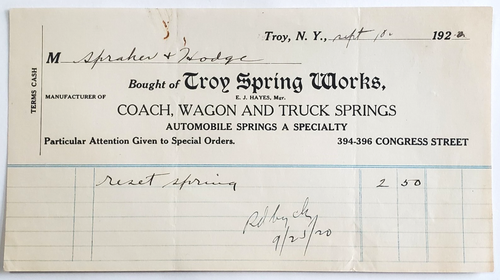 Troy, N. Y., Sept 10 1920
M Spraker & Hodge
Bought of Troy Spring Works,
TERMS CASH
E. J. HAYES, Mgr.
MANUFACTURER OF
COACH, WAGON AND TRUCK SPRINGS
AUTOMOBILE SPRINGS A SPECIALTY
Particular Attention Given to Special Orders. 394-396 CONGRESS STREET
reset spring 2 50
Pd by ck
9/23/20